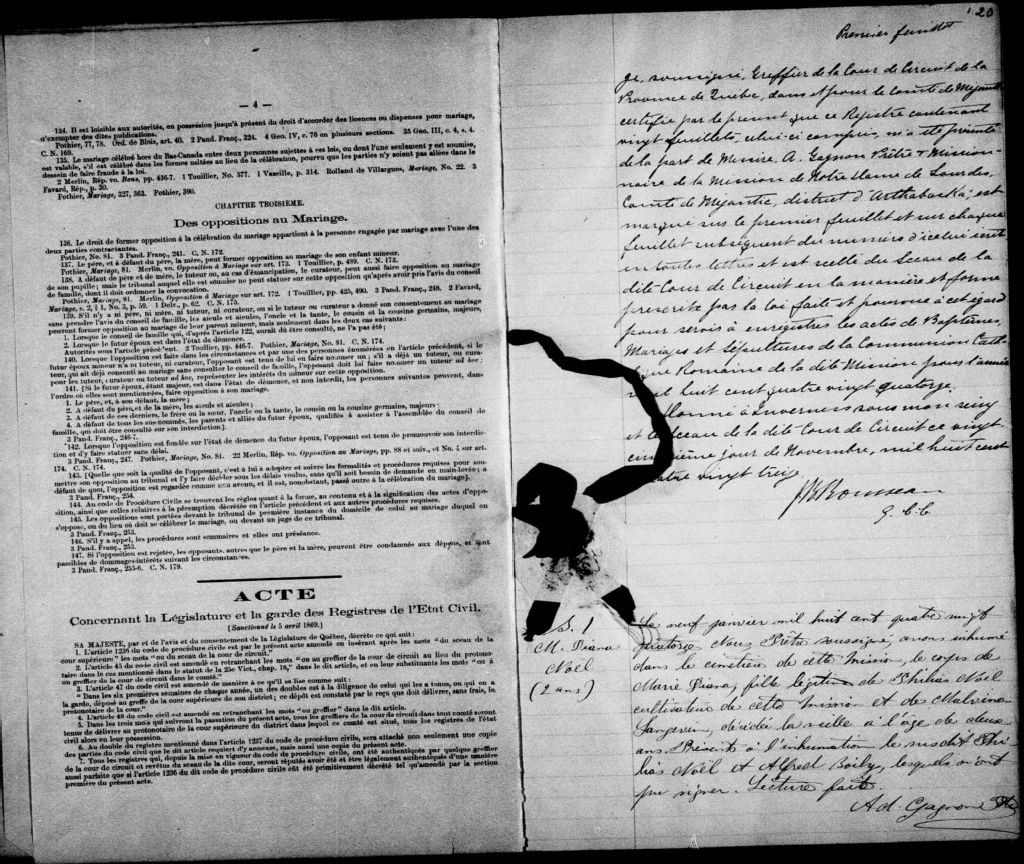 — 4 —
134. Il est loisible aux autorités, en possession jusqu'à présent du droit d'accorder des licences ou dispenses pour mariage,
d'exempter des dites publications.
Pothier, 77, 78. Ord. de Blois, art. 40. 2 Pand. Franç., 324. 4 Geo. IV, c. 76 en plusieurs sections. 35 Geo. III, c. 4, s. 4.
C. N. 169.
135. Le mariage célébré hors du Bas-Canada entre deux personnes sujettes à ses lois, ou dont l'une seulement y est soumise,
est valable, s'il est célébré dans les formes usitées au lieu de la célébration, pourvu que les parties n'y soient pas allées dans le
dessein de faire fraude à la loi.
2 Merlin, Rép. vo. Bans, pp. 436-7. 1 Touillier, No. 577. 1 Vazeille, p. 314. Rolland de Villargues, Mariage, No. 22. 3
Favard, Rép., p. 30.
Pothier, Mariage, 327, 363. Pothier, 390.
CHAPITRE TROISIEME.
Des oppositions au Mariage.
136. Le droit de former opposition à la célébration du mariage appartient à la personne engagée par mariage avec l'une des
deux parties contractantes.
Pothier, No. 81. 3 Pand. Franç., 241. C. N. 172.
137. Le père, et à défaut du père, la mère, peut former opposition au mariage de son enfant mineur.
Pothier, Mariage, 81. Merlin, vo. Opposition à Mariage sur art. 173. 1 Touillier, p. 489. C. N. 173.
138. A défaut de père et de mère, le tuteur ou, au cas d'émancipation, le curateur, peut aussi faire opposition au mariage
de son pupille; mais le tribunal auquel elle est soumise ne peut statuer sur cette opposition qu'après avoir pris l'avis du conseil
de famille, dont il doit ordonner la convocation.
Pothier, Mariage, 81. Merlin, Opposition à Mariage sur art. 172. 1 Touillier, pp. 425, 490. 3 Pand. Franç., 248. 2 Favard,
Mariage, s. 2, § 1, No. 3, p. 59. 1 Delv., p. 62. C. N. 175.
139. S'il n'y a ni père, ni mère, ni tuteur, ni curateur, ou si le tuteur ou curateur a donné son consentement au mariage
sans prendre l'avis du conseil de famille, les aïeuls et aïeules, l'oncle et la tante, le cousin et la cousine germains, majeurs,
peuvent former opposition au mariage de leur parent mineur, mais seulement dans les deux cas suivants:
1. Lorsque le conseil de famille qui, d'après l'article 122, aurait dû être consulté, ne l'a pas été;
2. Lorsque le futur époux est dans l'état de démence.
Autorités sous l'article précédent. 2 Touillier, pp. 446-7. Pothier, Mariage, No. 81. C. N. 174.
140. Lorsque l'opposition est faite dans les circonstances et par une des personnes énumérées en l'article précédent, si le
futur époux mineur n'a ni tuteur, ni curateur, l'opposant est tenu de lui en faire nommer un; s'il a déjà un tuteur, ou cura-
teur, qui ait déjà consenti au mariage sans consulter le conseil de famille, l'opposant doit lui faire nommer un tuteur ad hoc;
pour les tuteur, curateur ou tuteur ad hoc, représenter les intérêts du mineur sur cette opposition.
141. [Si le futur époux, étant majeur, est dans l'état de démence, et non interdit, les personnes suivantes peuvent, dans
l'ordre où elles sont mentionnées, faire opposition à son mariage.
1. Le père, et, à son défaut, la mère;
2. A défaut du père, et de la mère, les aïeuls et aïeules;
3. A défaut de ces derniers, le frère ou la sœur, l'oncle ou la tante, le cousin ou la cousine germains, majeurs;
4. A défaut de tous les sus-nommés, les parents et alliés du futur époux, qualifiés à assister à l'Assemblée du conseil de
famille, qui doit être consulté sur son interdiction].
3 Pand. Franç., 246-7.
142. Lorsque l'opposition est fondée sur l'état de démence du futur époux, l'opposant est tenu de promouvoir son interdic-
tion et d'y faire statuer sans délai.
3 Pand. Franç., 247. Pothier, Mariage, No. 81. 22 Merlin, Rép. vo. Opposition au Mariage, pp. 88 et suiv., et No. 4 sur art.
174. C. N. 174.
143. [Quelle que soit la qualité de l'opposant, c'est à lui à adopter et suivre les formalités et procédures requises pour sou-
mettre son opposition au tribunal et l'y faire décider sous les délais voulus, sans qu'il soit besoin de demande en main-levée; à
défaut de quoi, l'opposition est regardée comme non avenue, et il est, nonobstant, passé outre à la célébration du mariage].
3 Pand. Franç., 254.
144. Au code de Procédure Civile se trouvent les règles quant à la forme, au contenu et à la signification des actes d'oppo-
sition, ainsi que celles relatives à la péremption décrétée en l'article précédent et aux autres procédures requises.
145. Les oppositions sont portées devant le tribunal de première instance du domicile de celui au mariage duquel on
s'oppose, ou du lieu où doit se célébrer le mariage, ou devant un juge de ce tribunal.
3 Pand. Franç., 253.
146. S'il y a appel, les procédures sont sommaires et elles ont préséance.
3 Pand. Franç., 253.
147. Si l'opposition est rejetée, les opposants, autres que le père et la mère, peuvent être condamnés aux dépens, et sont
passibles de dommages-intérêts suivant les circonstances.
3 Pand. Franç., 255-6. C. N. 179.
ACTE
Concernant la Législature et la garde des Registres de l'Etat Civil.
[Sanctionné le 5 avril 1869.]
SA MAJESTE, par et de l'avis et du consentement de la Législature de Québec, décrète ce qui suit:
1. L'article 1236 du code de procédure civile est par le présent acte amendé en insérant après les mots "du sceau de la
cour supérieure" les mots "ou du sceau de la cour de circuit."
2. L'article 45 du code civil est amendé en retranchant les mots "ou au greffier de la cour de circuit au lieu du protono-
taire dans le cas mentionné dans le statut de la 25e Vict., chap. 16," dans le dit article, et en leur substituants les mots "ou à
un greffier de la cour de circuit dans le comté."
3. L'article 47 du code civil est amendé de manière à ce qu'il se lise comme suit:
"Dans les six premières semaines de chaque année, un des doubles est à la diligence de celui qui les a tenus, ou qui en a
la garde, déposé au greffe de la cour supérieure de son district; ce dépôt est constaté par le reçu que doit délivrer, sans frais, le
protonotaire de la cour."
4. L'article 48 du code civil est amendé en retranchant les mots "ou greffier" dans le dit article.
5. Dans les trois mois qui suivront la passation du présent acte, tous les greffiers de la cour de circuit dans tout comté seront
tenus de délivrer au protonotaire de la cour supérieure du district dans lequel ce comté est situé, tous les registres de l'état
civil alors en leur possession.
6. Au double du registre mentionné dans l'article 1237 du code de procédure civile, sera attaché non seulement une copie
des parties du code civil que le dit article requiert d'y annexer, mais aussi une copie du présent acte.
7. Tous les registres qui, depuis la mise en vigueur du code de procédure civile, ont été authentiqués par quelque greffier
de la cour de circuit et revêtus du sceau de la dite cour, seront réputés avoir été et être légalement authentiqués d'une manière
aussi parfaite que si l'article 1236 du dit code de procédure civile eût été primitivement décrété tel qu'amendé par la section
première du présent acte.
20
Premier feuillet
Je, soussigné, Greffier de la Cour de Circuit de la
Province de Québec, dans et pour le Comté de Mégantic
certifie par le présent que ce Registre contenant
vingt feuillets, celui-ci compris, m'a été présenté
de la part de Messire A. Gagnon Prêtre & Mission-
naire de la Mission de Notre Dame de Lourdes,
Comté de Mégantic, district d'Arthabaska; est
marqué sur le premier feuillet et sur chaque
feuillet subséquent du numéro d'icelui écrit
en toutes lettres et est scellé du Sceau de la
dite Cour de Circuit en la manière et forme
prescrite par la loi faite et pourvue à cet égard
pour servir à enregistrer les actes de Baptêmes,
Mariages et Sépultures de la Communion Cath-
Romaine de la dite Mission pour l'année
mil huit cent quatre vingt quatorze.
Donné à Inverness sous mon seing
et le Sceau de la dite Cour de Circuit ce vingt
jour de Novembre, mil huit cent
quatre vingt treize
Rousseau
G. C. C.
S. 1
M. Diana
Noël
(2 ans)
Le neuf janvier mil huit cent quatre vingt
quatorze, Nous, Prêtre soussigné, avons inhumé
dans le cimetière de cette mission le corps de
Marie Diana, fille légitime de Philias Noël
cultivateur de cette mission et de Malvina
décédée la veille à l'âge de deux
ans. Présents à l'inhumation le susdit Phi-
lias Noël et Alfred Boily, lesquels n'ont
pu signer. Lecture faite.
Ad. Gagnon Ptre